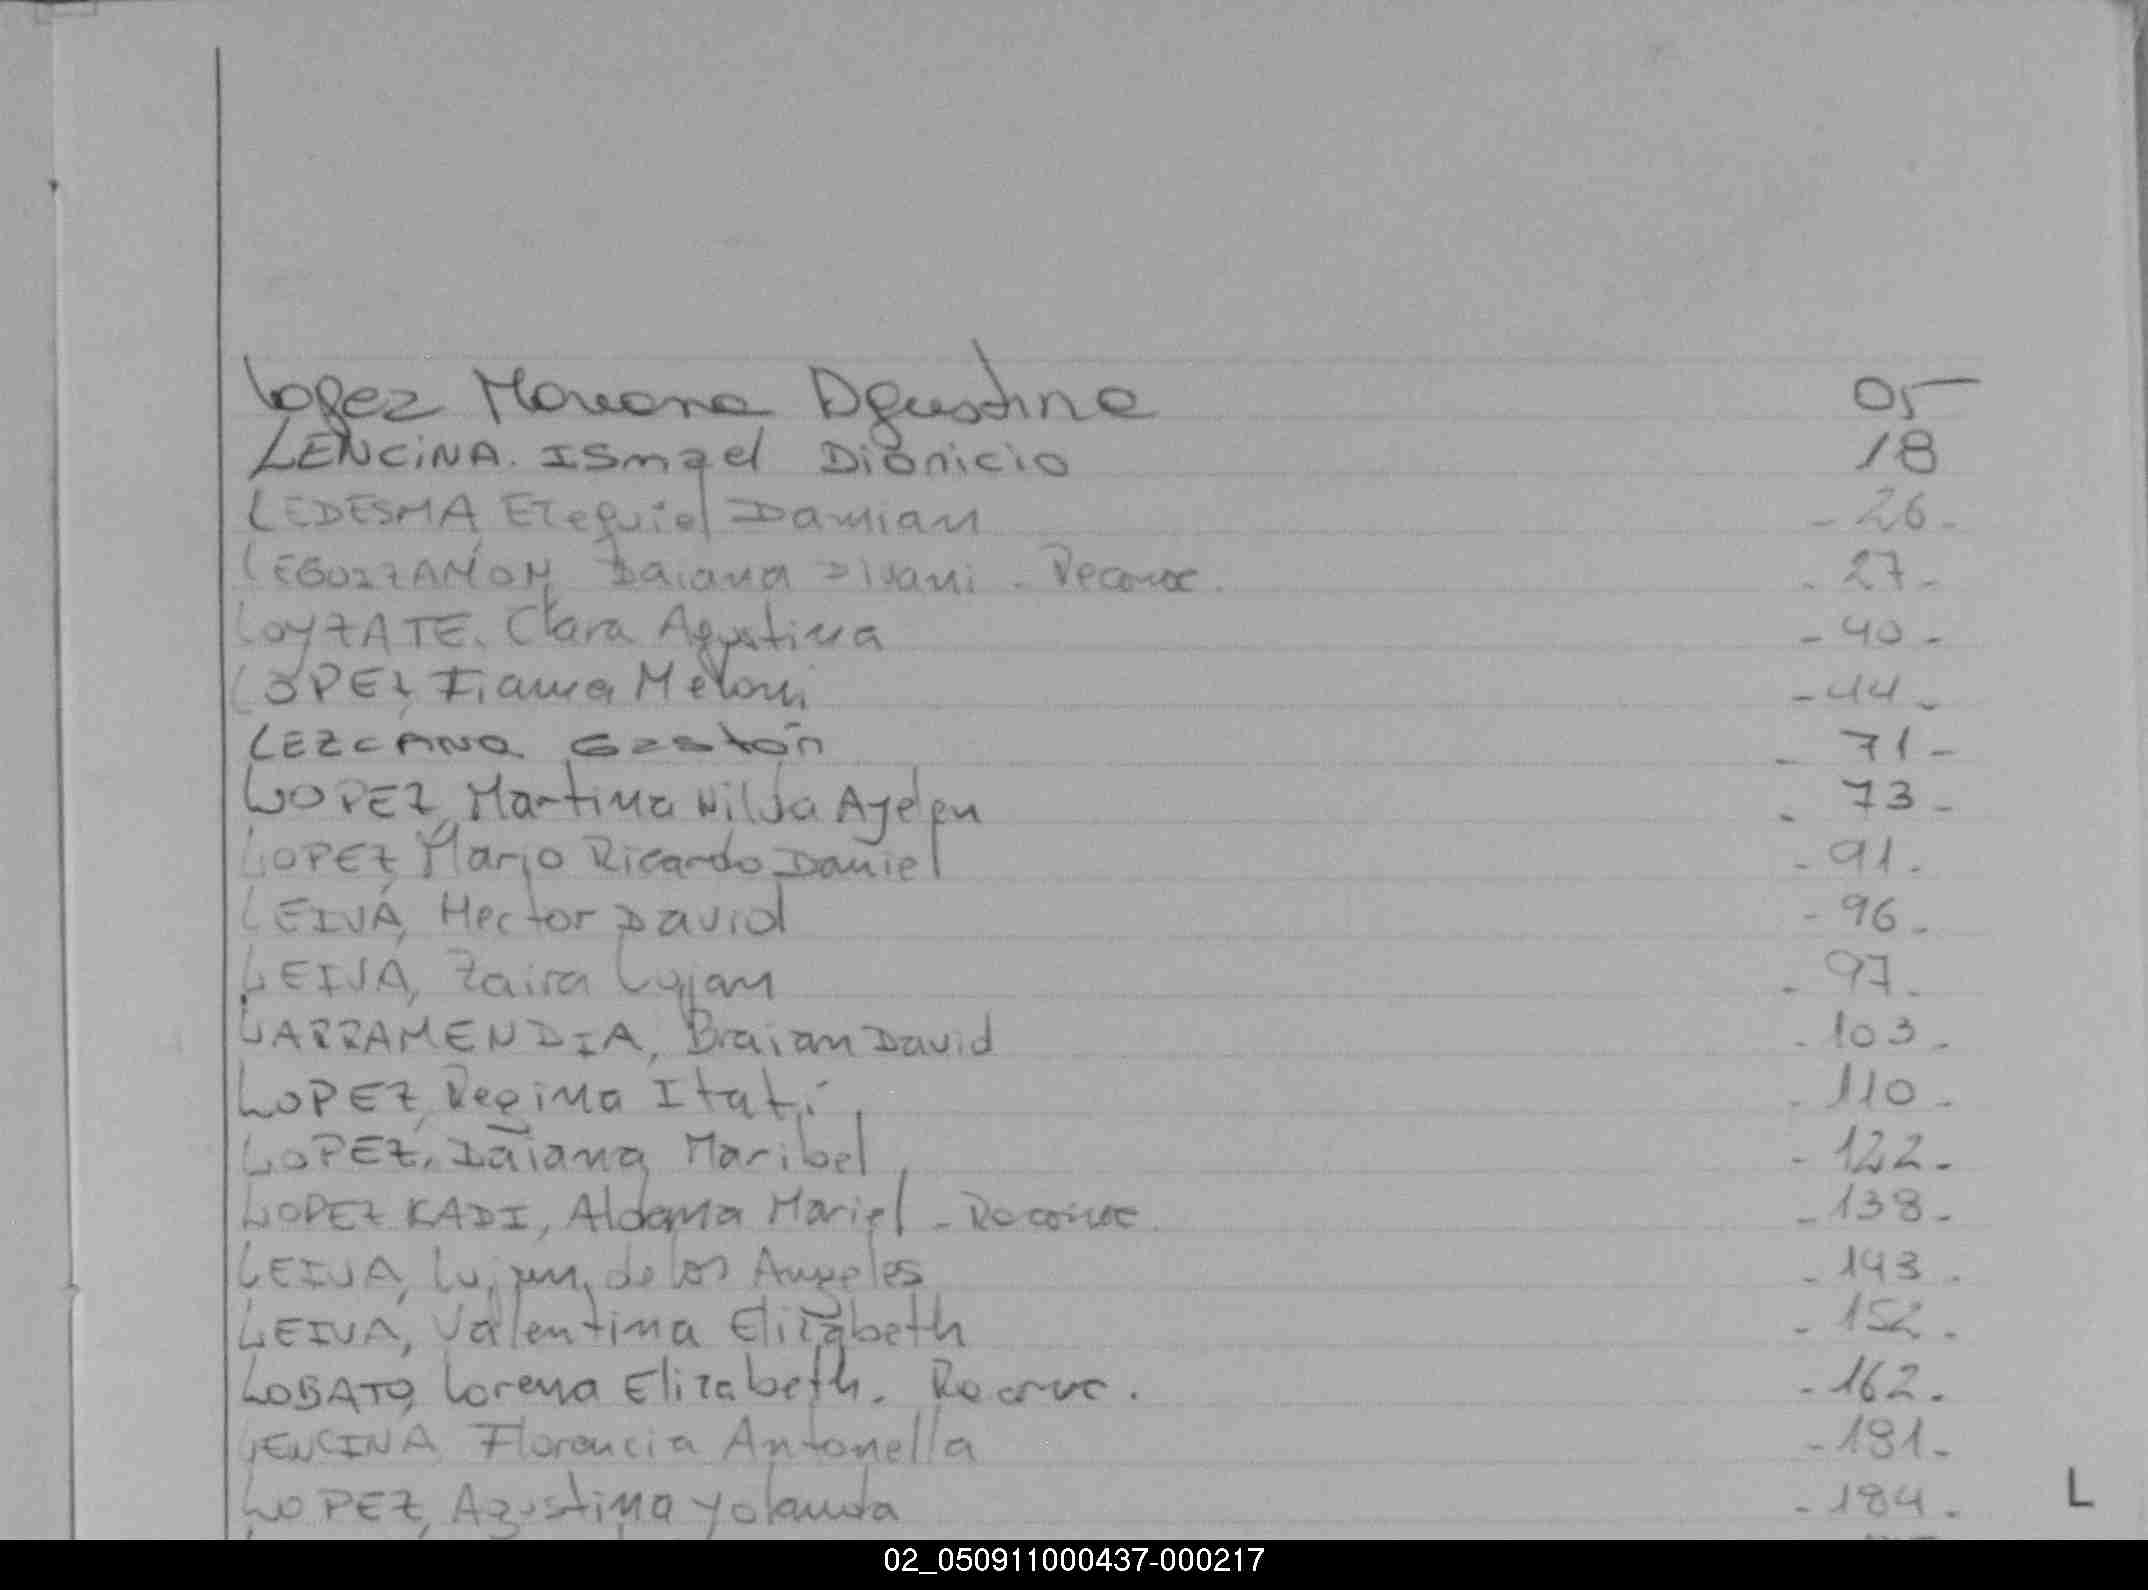 Lopez Morena Agustina 05
LENCINA. ISmael Dionicio 18
LEDESMA, Ezequiel Damian - 26 -
LEGUIZAMON, Daiana - Reconoc. - 27 -
LOYZATE. Clara Agustina - 40 -
LOPEZ, Fiama - 44 -
LEZCANO Gastón - 71 -
LOPEZ, Martina Nilda Ayelen - 73 -
LOPEZ, Mario Ricardo Daniel - 91 -
LEIVA, Hector David - 96 -
LEIVA, Zaira Lujan - 97 -
LARRAMENDIA, Braian David - 103 -
LOPEZ, Regina Itatí - 110 -
LOPEZ, Daiana Maribel - 122 -
LOPEZ KADI, Aldana Mariel - Reconoc. - 138 -
LEIVA, Lujan, de los Angeles - 143 -
LEIVA, Valentina Elizabeth - 152 -
LOBATO, Lorena Elizabeth. Reconoc. - 162 -
LENCINA Florencia Antonella - 181 -
LOPEZ, Agustina Yolanda - 184 -
L
02_050911000437-000217